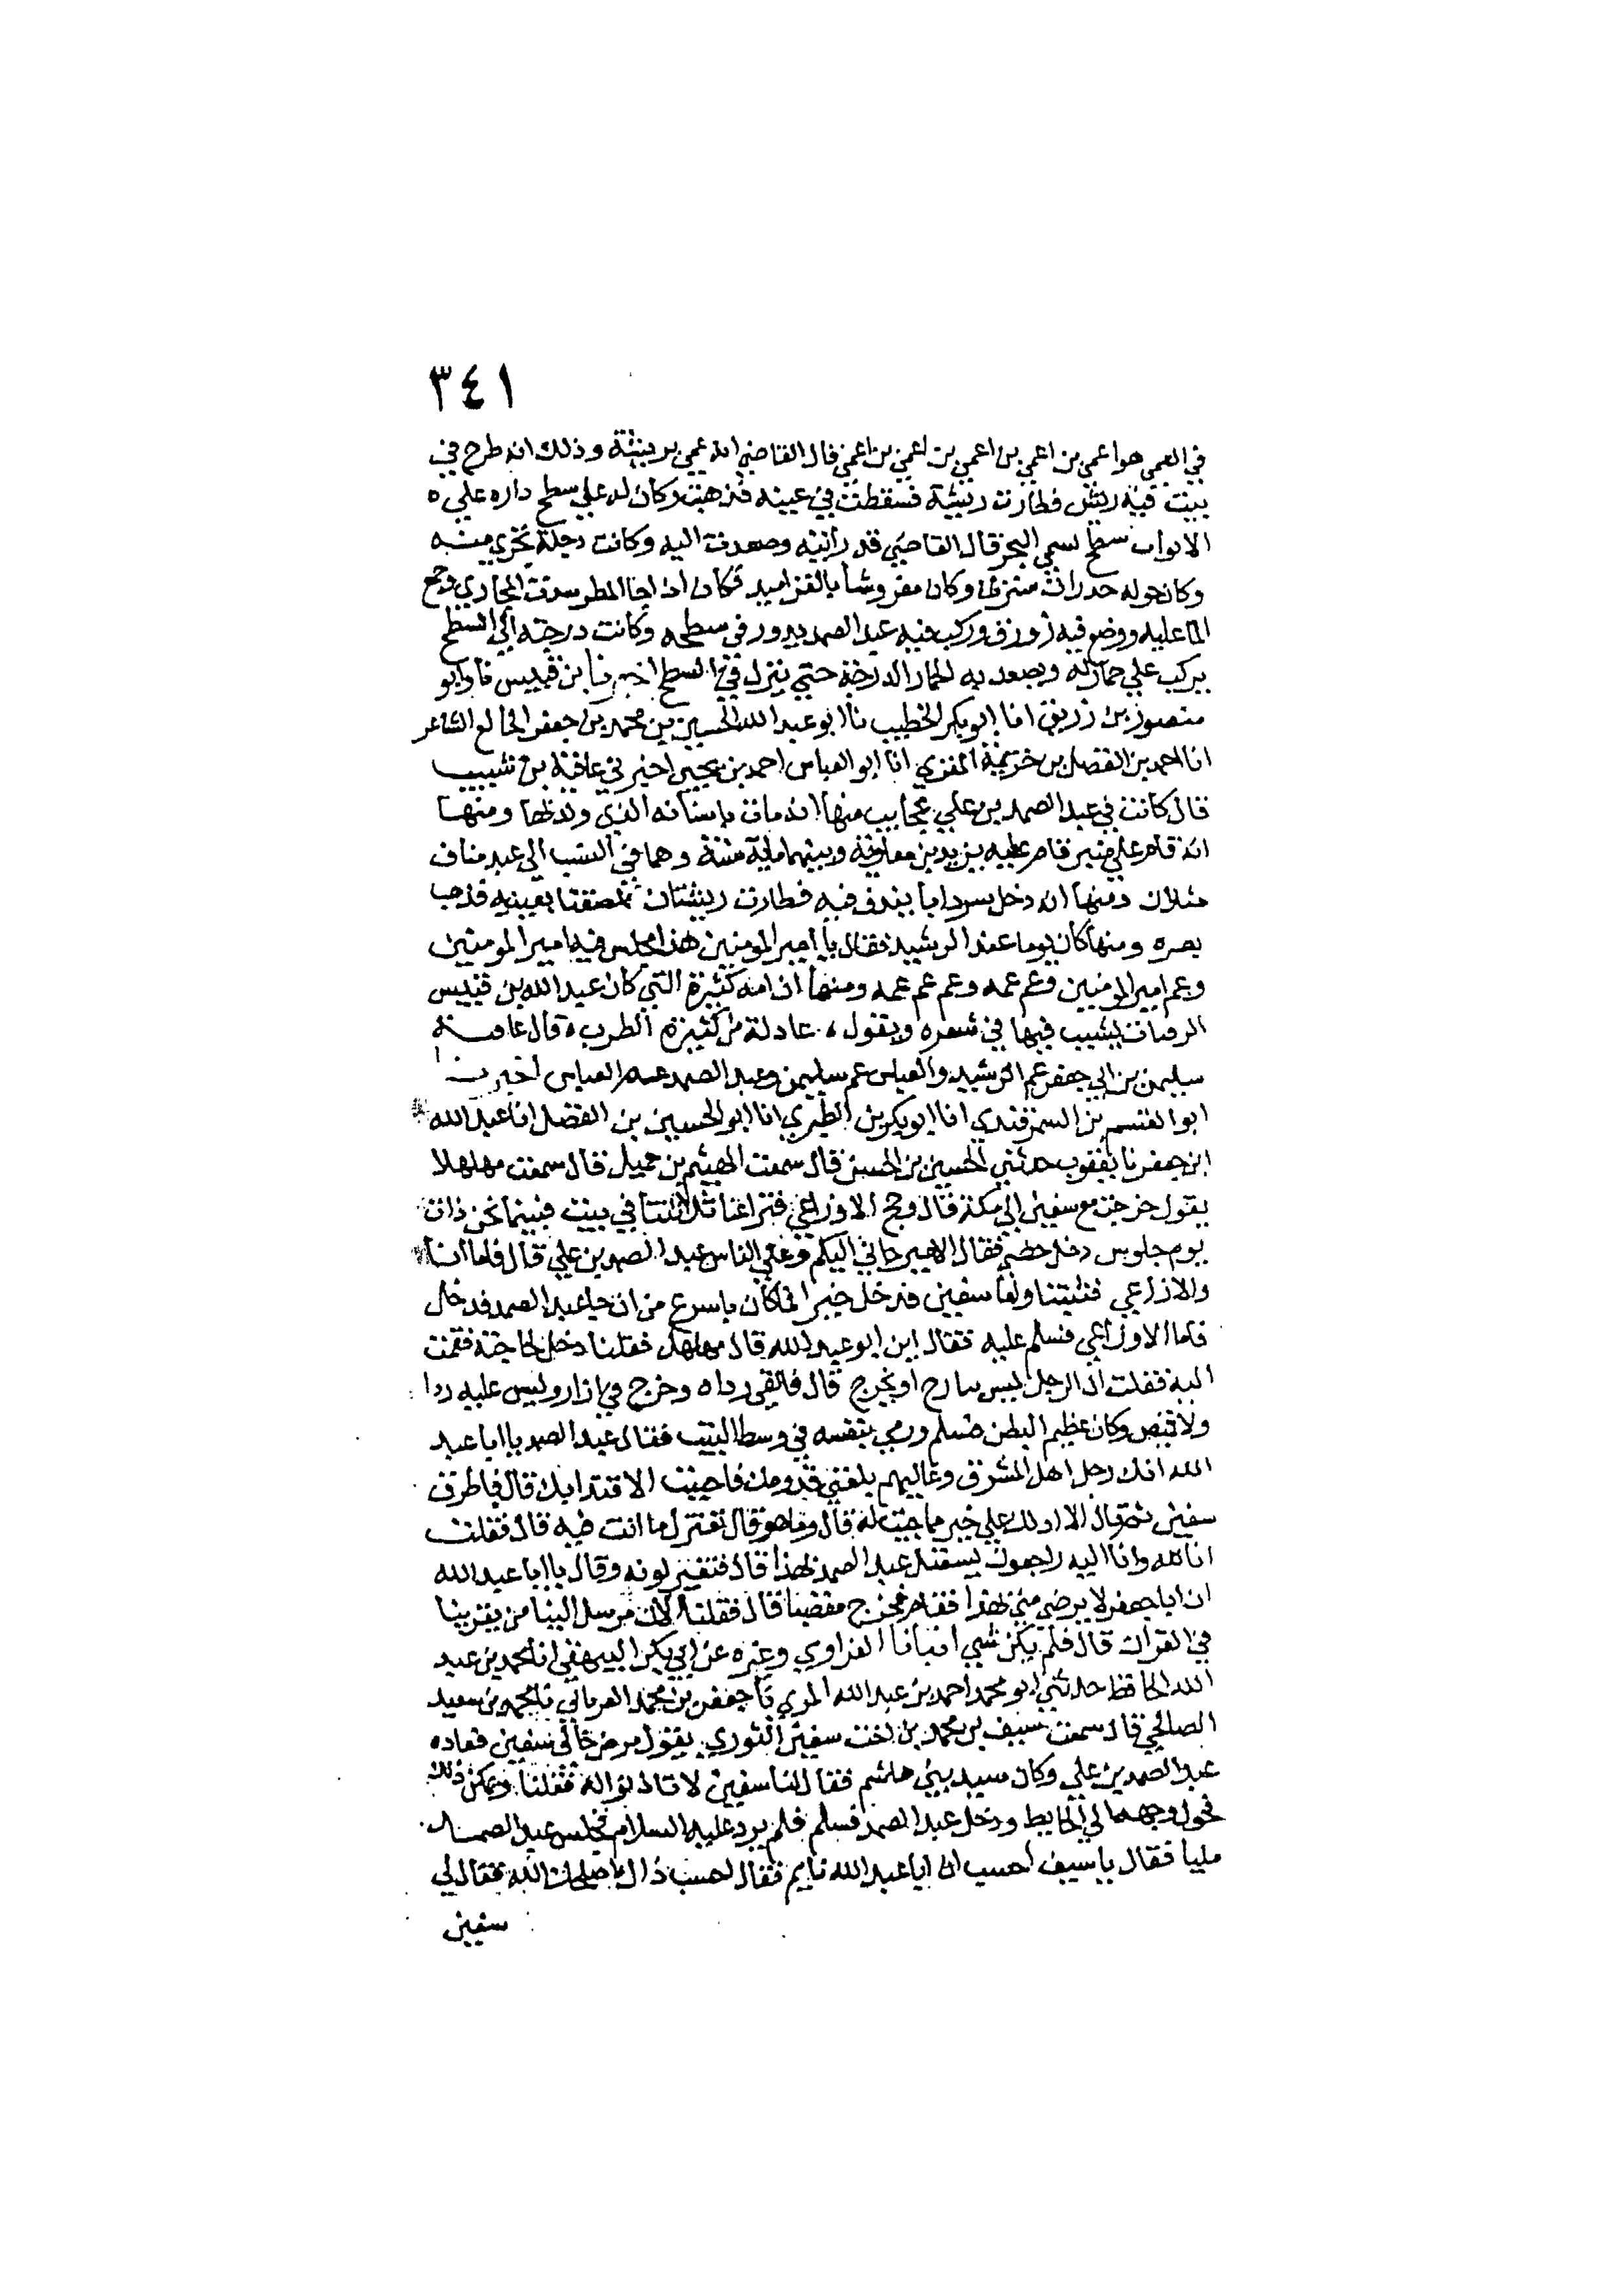 ٣٤١
في العمي هو اعمي بن اعمي بن اعمي بن اعمي بن اعمي قال القاضي انه عمي بريشة وذلك انه طرح في
بيت فيه ريش فطارت ريشة فسقطت في عينه فذهبت وكان له علي سطح داره علي ه
الابواب سطحا لسمي البحر قال القاضي قد رأيته وصعدت اليه وكانت دجلة تجري منه
وكان حوله جدرات وكان مفروشا بالقراميد فكان اذا جا المطر سدت المجاري وجمع
الما عليه ووضع فيه زورق وركب فيه عبد الصمد يدور في سطحه وكانت درجته الي السطح
يركب علي حمار له ويصعد به الحمار الدرجة حتي ينزل في السطح اخبرنا بن قبيس نا وابو
منصور بن زريق انا ابو بكر الخطيب نا ابو عبد الله الحسين بن محمد بن جعفر الخالع الشاعر
انا احمد بن الفضل بن خزيمة انا ابو العباس احمد بن يحيي اخبرني عافية بن شبيب
قال كانت في عبد الصمد بن علي عجايب منها انه مات باسنانه الذي ولد بها ومنها
انه قام علي منبر قام عليه يزيد بن معاوية وبينهما ماية سنة وهما في النسب الي عبد مناف
مثلان ومنها انه دخل سردابا يندف فيه فطارت ريشتان بعينيه فذهب
بصره ومنها كان يوما عند الرشيد فقال يا امير المومنين هذا مجلس فيه امير المومنين
وعم امير المومنين وعم عمه وعم عم عمه ومنها ان امه كثيرة التي كان عبد الله بن قيس
الرقيات يشبب فيها في شعره ويقول عادله من كثيرة الطرب قال عافية
سليمن بن ابي جعفر عم الرشيد والعباس عم سليمن وعبد الصمد عم العباس اخبرنا
ابو القسم بن السمرقندي انا ابو بكر بن الطبري انا ابو الحسين بن الفضل انا عبد الله
ابن جعفر نا يعقوب حدثني الحسين بن الحسن قال سمعت الهيثم بن جميل قال سمعت مهلهلا
يقول خرجت مع سفين الي مكة قال وحج الاوزاعي فنزلنا ثلاثتنا في بيت فبينما نحن ذات
يوم جلوس دخل خصي فقال الامير جاني اليكم وعلي الناس عبد الصمد بن علي قال فاما انا
والاوزاعي فثبتنا واما سفين فدخل فما كان باسرع من ان جا عبد الصمد فدخل
فاما الاوزاعي فسلم عليه فقال اين ابو عبد الله قال مهلهل فقلنا دخل لحاجته فقمت
اليه فقلت ان الرجل ليس ببارح او تخرج قال فالقي رداه وخرج في ازار وليس عليه ردا
ولا قميص وكان عظيم البطن فسلم ورمي بنفسه في وسط البيت فقال عبد الصمد يا ابا عبد
الله انك رجل اهل المشرق وعاليهم بلغني قدومك فاحببت الاقتدا بك قال فاطرق
سفين ثم قال الا ادلك علي خير مما جيت له قال وما هو قال تعتزل ما انت فيه قال فقلت
انا لله وانا اليه راجعون يستقبل عبد الصمد بهذا قال فتغير لونه وقال يا ابا عبد الله
ان ابا جعفر لا يرضي مني بهذا فقام فخرج مغضبا قال فقلنا الان مرسل الينا من يقربنا
في القران قال فلم يكن شي انبانا الفراوي وغيره عن ابي بكر البيهقي انا محمد بن عبد
الله الحافظ حدثني ابو محمد احمد بن عبد الله المري نا جعفر بن محمد نا محمد بن سعيد
الصالحي قال سمعت سيف بن محمد بن اخت سفين الثوري يقول مرض خالي سفين فعاده
عبد الصمد بن علي وكان سيد بني هاشم فقال لنا سفين لا تاذنوا له فقلنا ويمكن ذلك
فحول وجهه الي الحايط ودخل عبد الصمد فسلم فلم يرد عليه السلام فجلس عبد الصمد
مليا فقال يا سيف احسب ان ابا عبد الله نايم فقال احسب ذاك اصلحك الله فقال لي
سفين